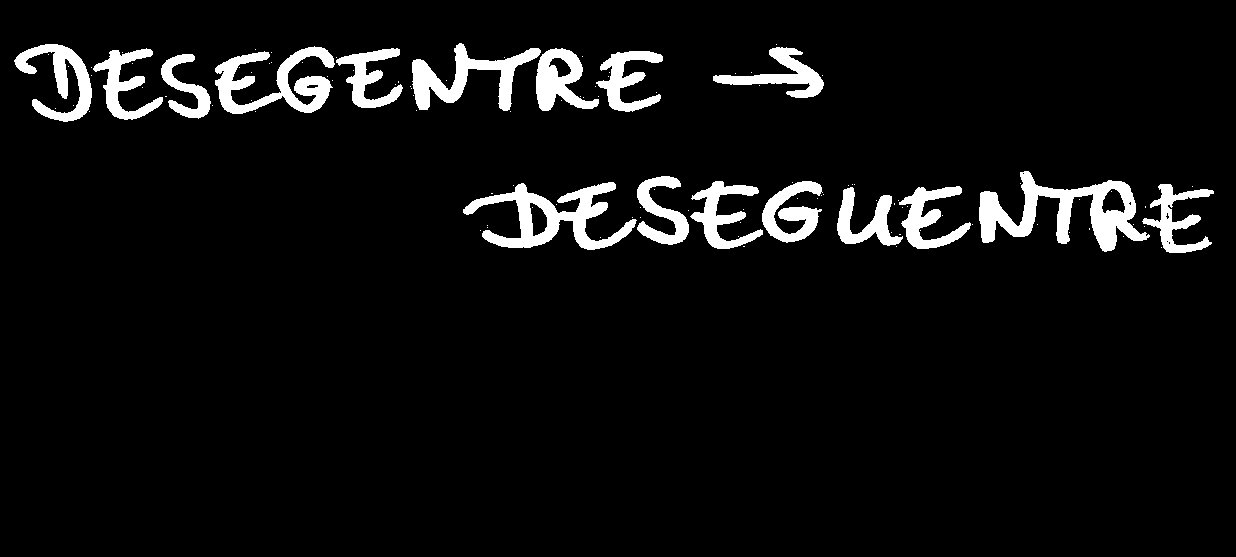 DESEGENTRE →
DESEGUENTRE